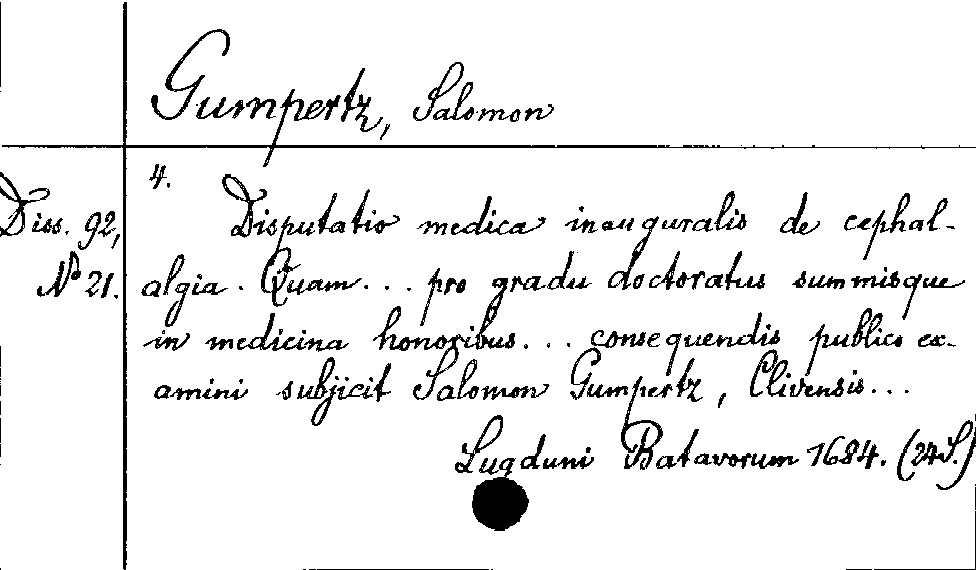 Gumpertz, Salomon
4.
Diss. 92,
No 21.
Disputatio medica inauguralis de cephal-
algia. Quam... pro gradu doctoratus summisque
in medicina honoribus... consequendis publico ex-
amini subjicit Salomon Gumpertz, Clivensis...
Lugduni Batavorum 1684. (24 S.)